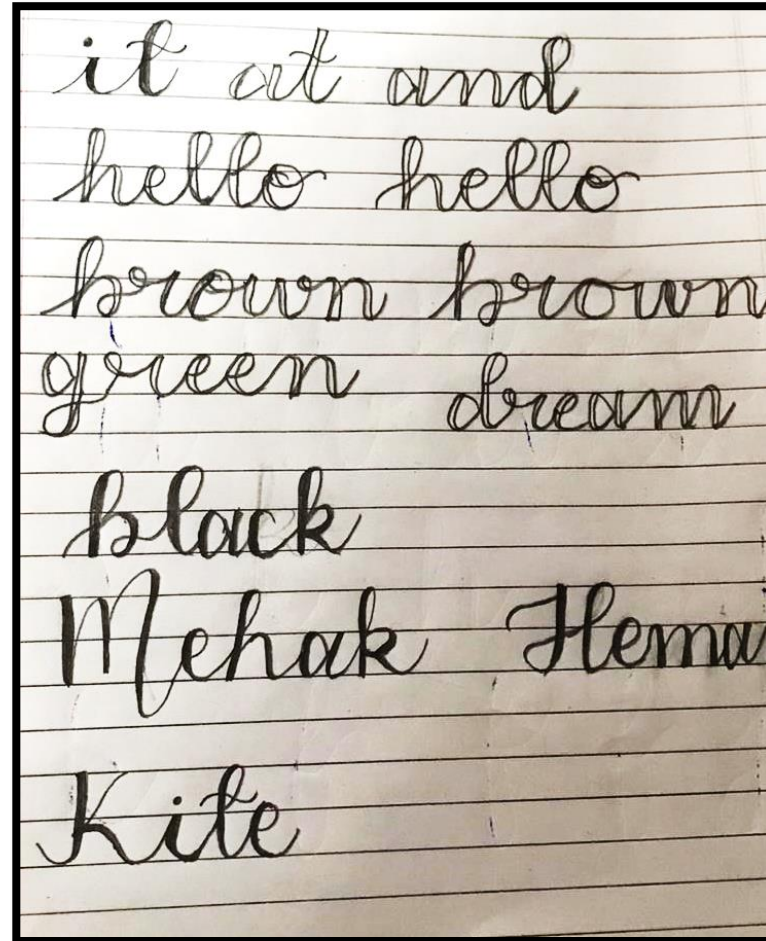 it at and
hello hello
brown brown
green dream
black
Mehak Hema
Kite